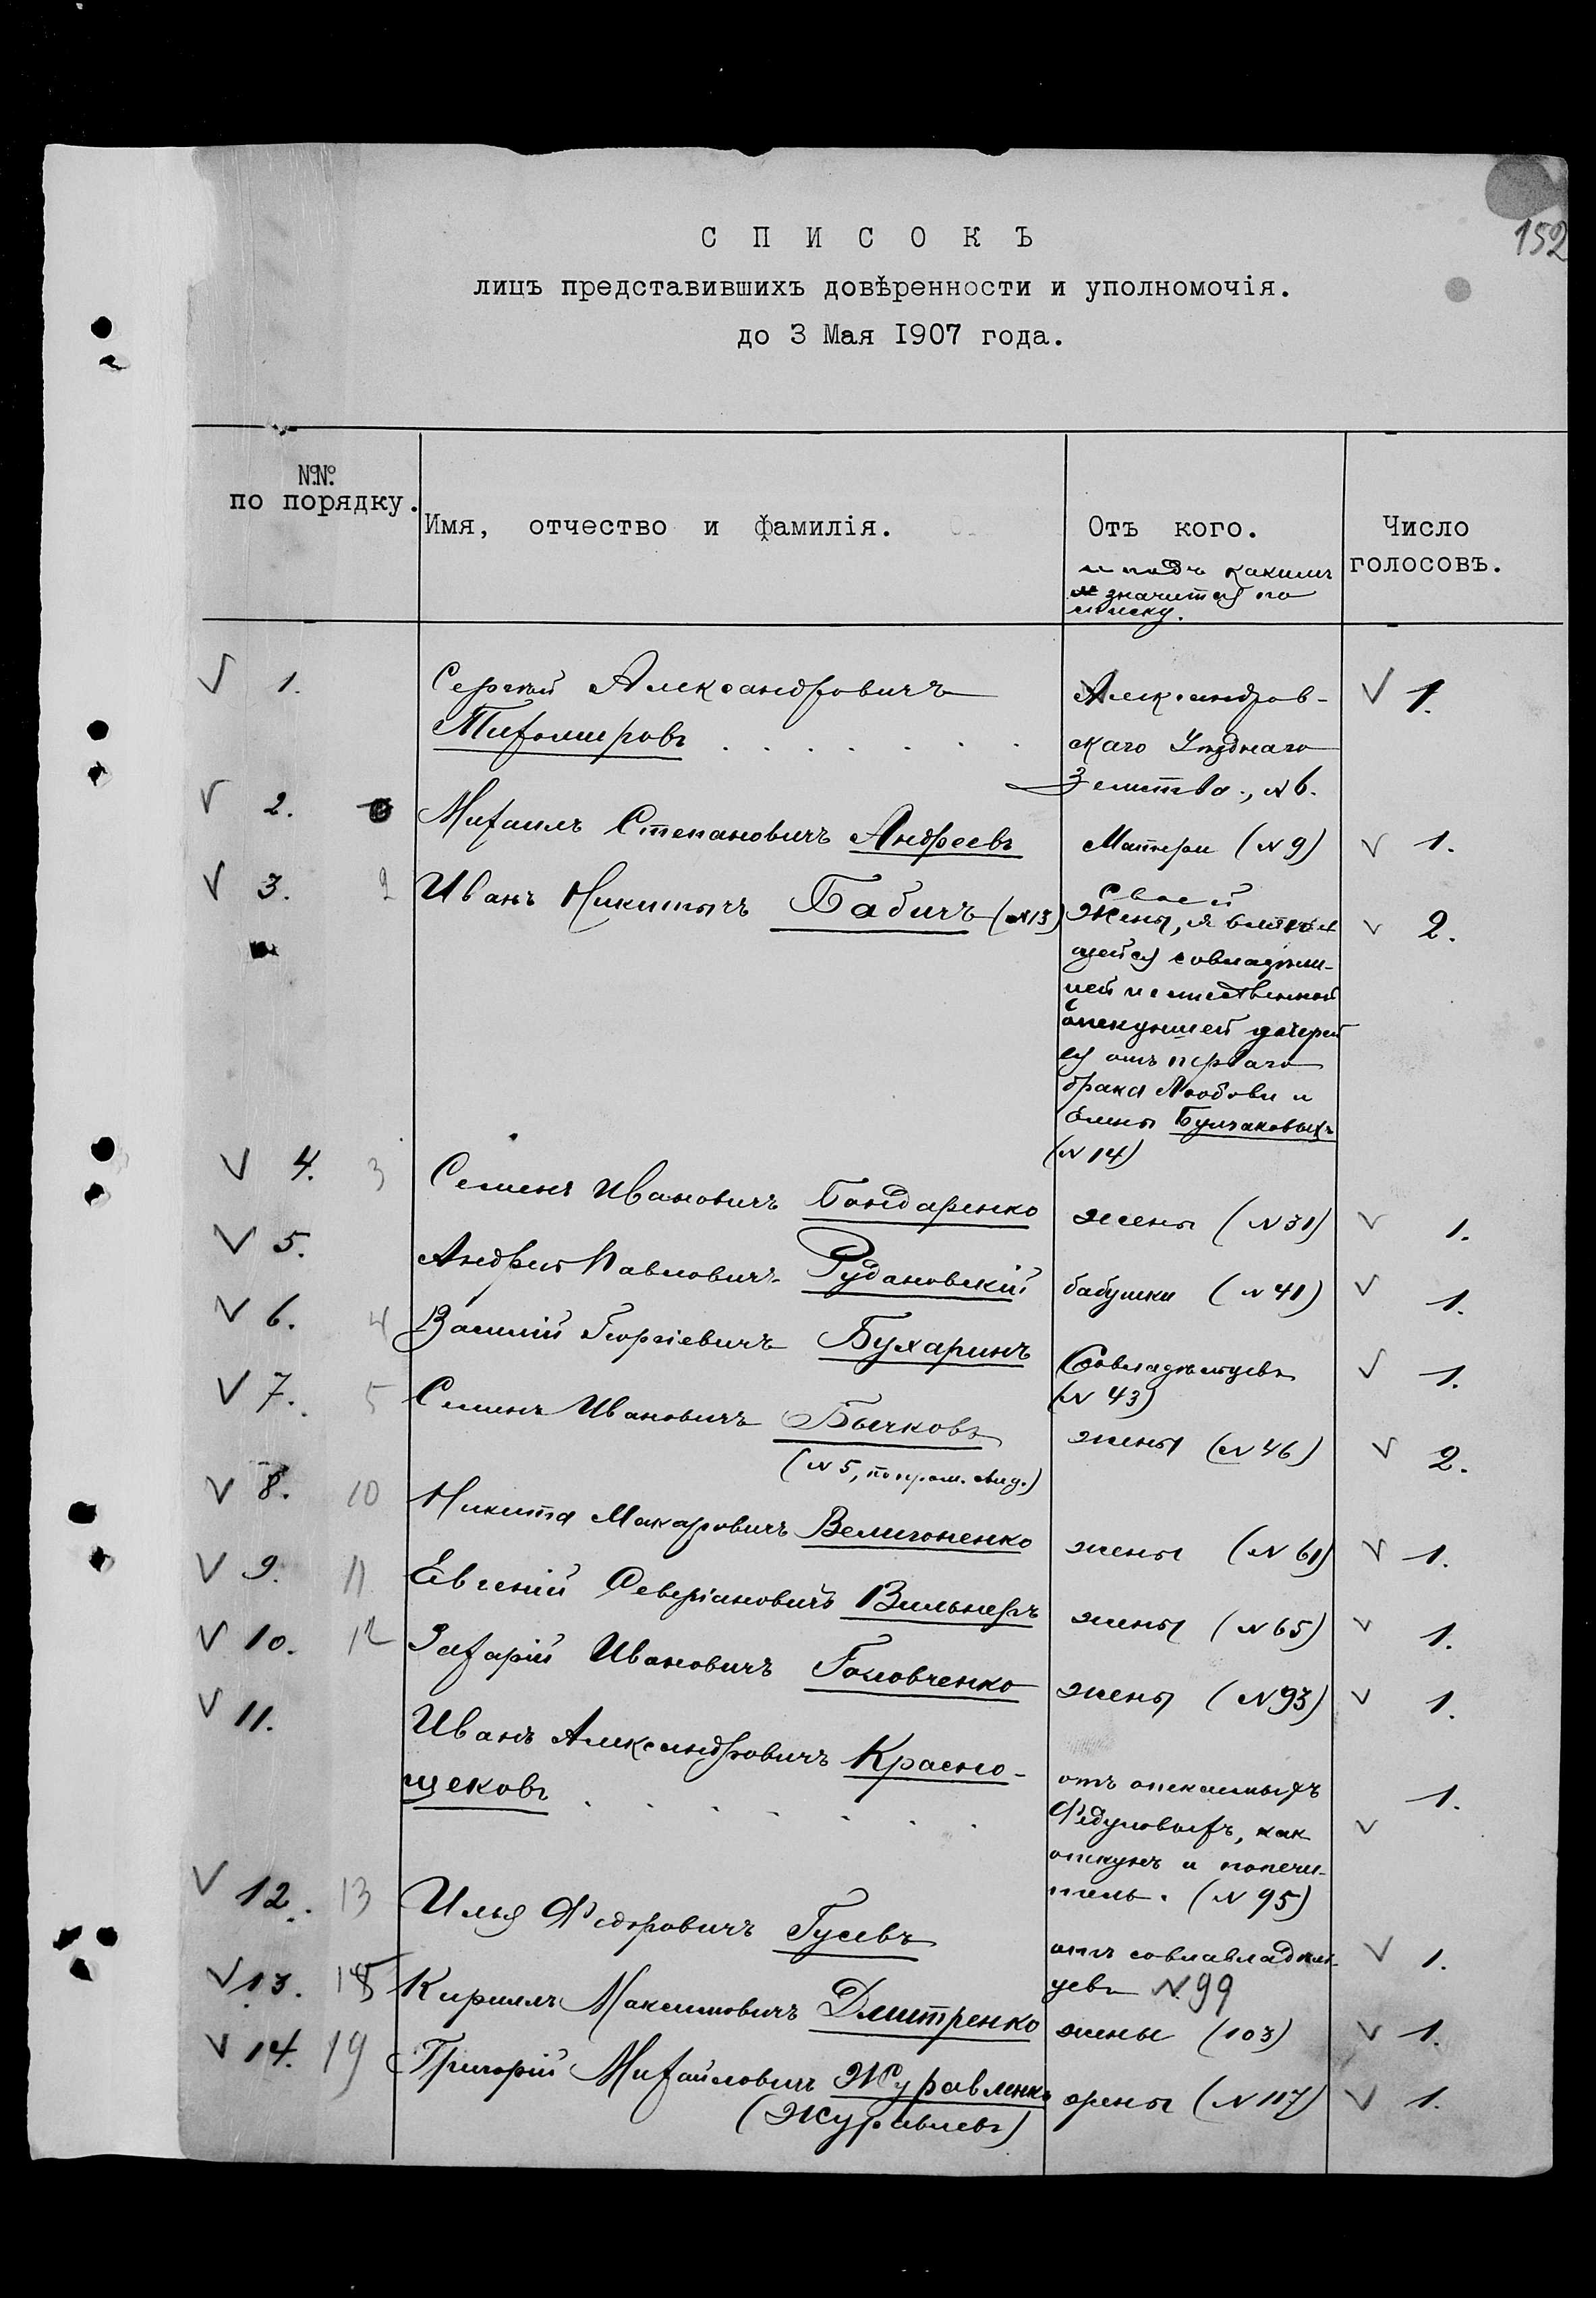 152
СПИСОКЪ
лицъ представившихъ довѣренности и уполномочія.
до 3 Мая 1907 года.
№№
по порядку.
Имя, отчество и фамилія.
Отъ кого.
и подъ какимъ
№ значится по
списку.
Число
голосовъ.
V 1. Сергѣй Александровичъ Александров- V 1.
Тихомировъ . . . . . . . скаго Уѣзднаго
Земства., №6.
V 2. Михаилъ Степановичъ Андреевъ Матери (№9) V 1.
V 3. 2 Иванъ Никитичъ Бабичъ (№13) своей
жены, являю- V 2.
щейся совладѣли-
цей и естественной
опекуншей дочерей
ея отъ перваго
брака Любови и
Елены Булгаковыхъ
(№14)
V 4. 3 Семенъ Ивановичъ Бондаренко жены (№31) V 1.
V 5. Андрей Павловичъ Рудановскій бабушки (№41) V 1.
V 6. 4 Василій Георгіевичъ Бухаринъ Совладѣльцевъ V 1.
(№43)
V 7. 5 Семенъ Ивановичъ Бычковъ жены (№46) V 2.
(№5, по пром. свид.)
V 8. 10 Никита Макаровичъ Велигоненко жены (№61) V 1.
V 9. 11 Евгеній Северіановичъ Вильнеръ жены (№65) V 1.
V 10. 12 Захарій Ивановичъ Головченко жены (№93) V 1.
V 11. Иванъ Александровичъ Красно-
щековъ . . . . . . . отъ опекаемыхъ 1.
Федуловыхъ, как V
опекунъ и попечи-
тель. (№95)
V 12. 13 Илья Федоровичъ Гусевъ отъ совлавладѣль- V 1.
цевъ №99
V 13. 18 Кириллъ Максимовичъ Дмитренко жены (103) V 1.
V 14. 19 Григорій Михайловичъ Журавленко жены (№117) V 1.
(Журавлевъ)